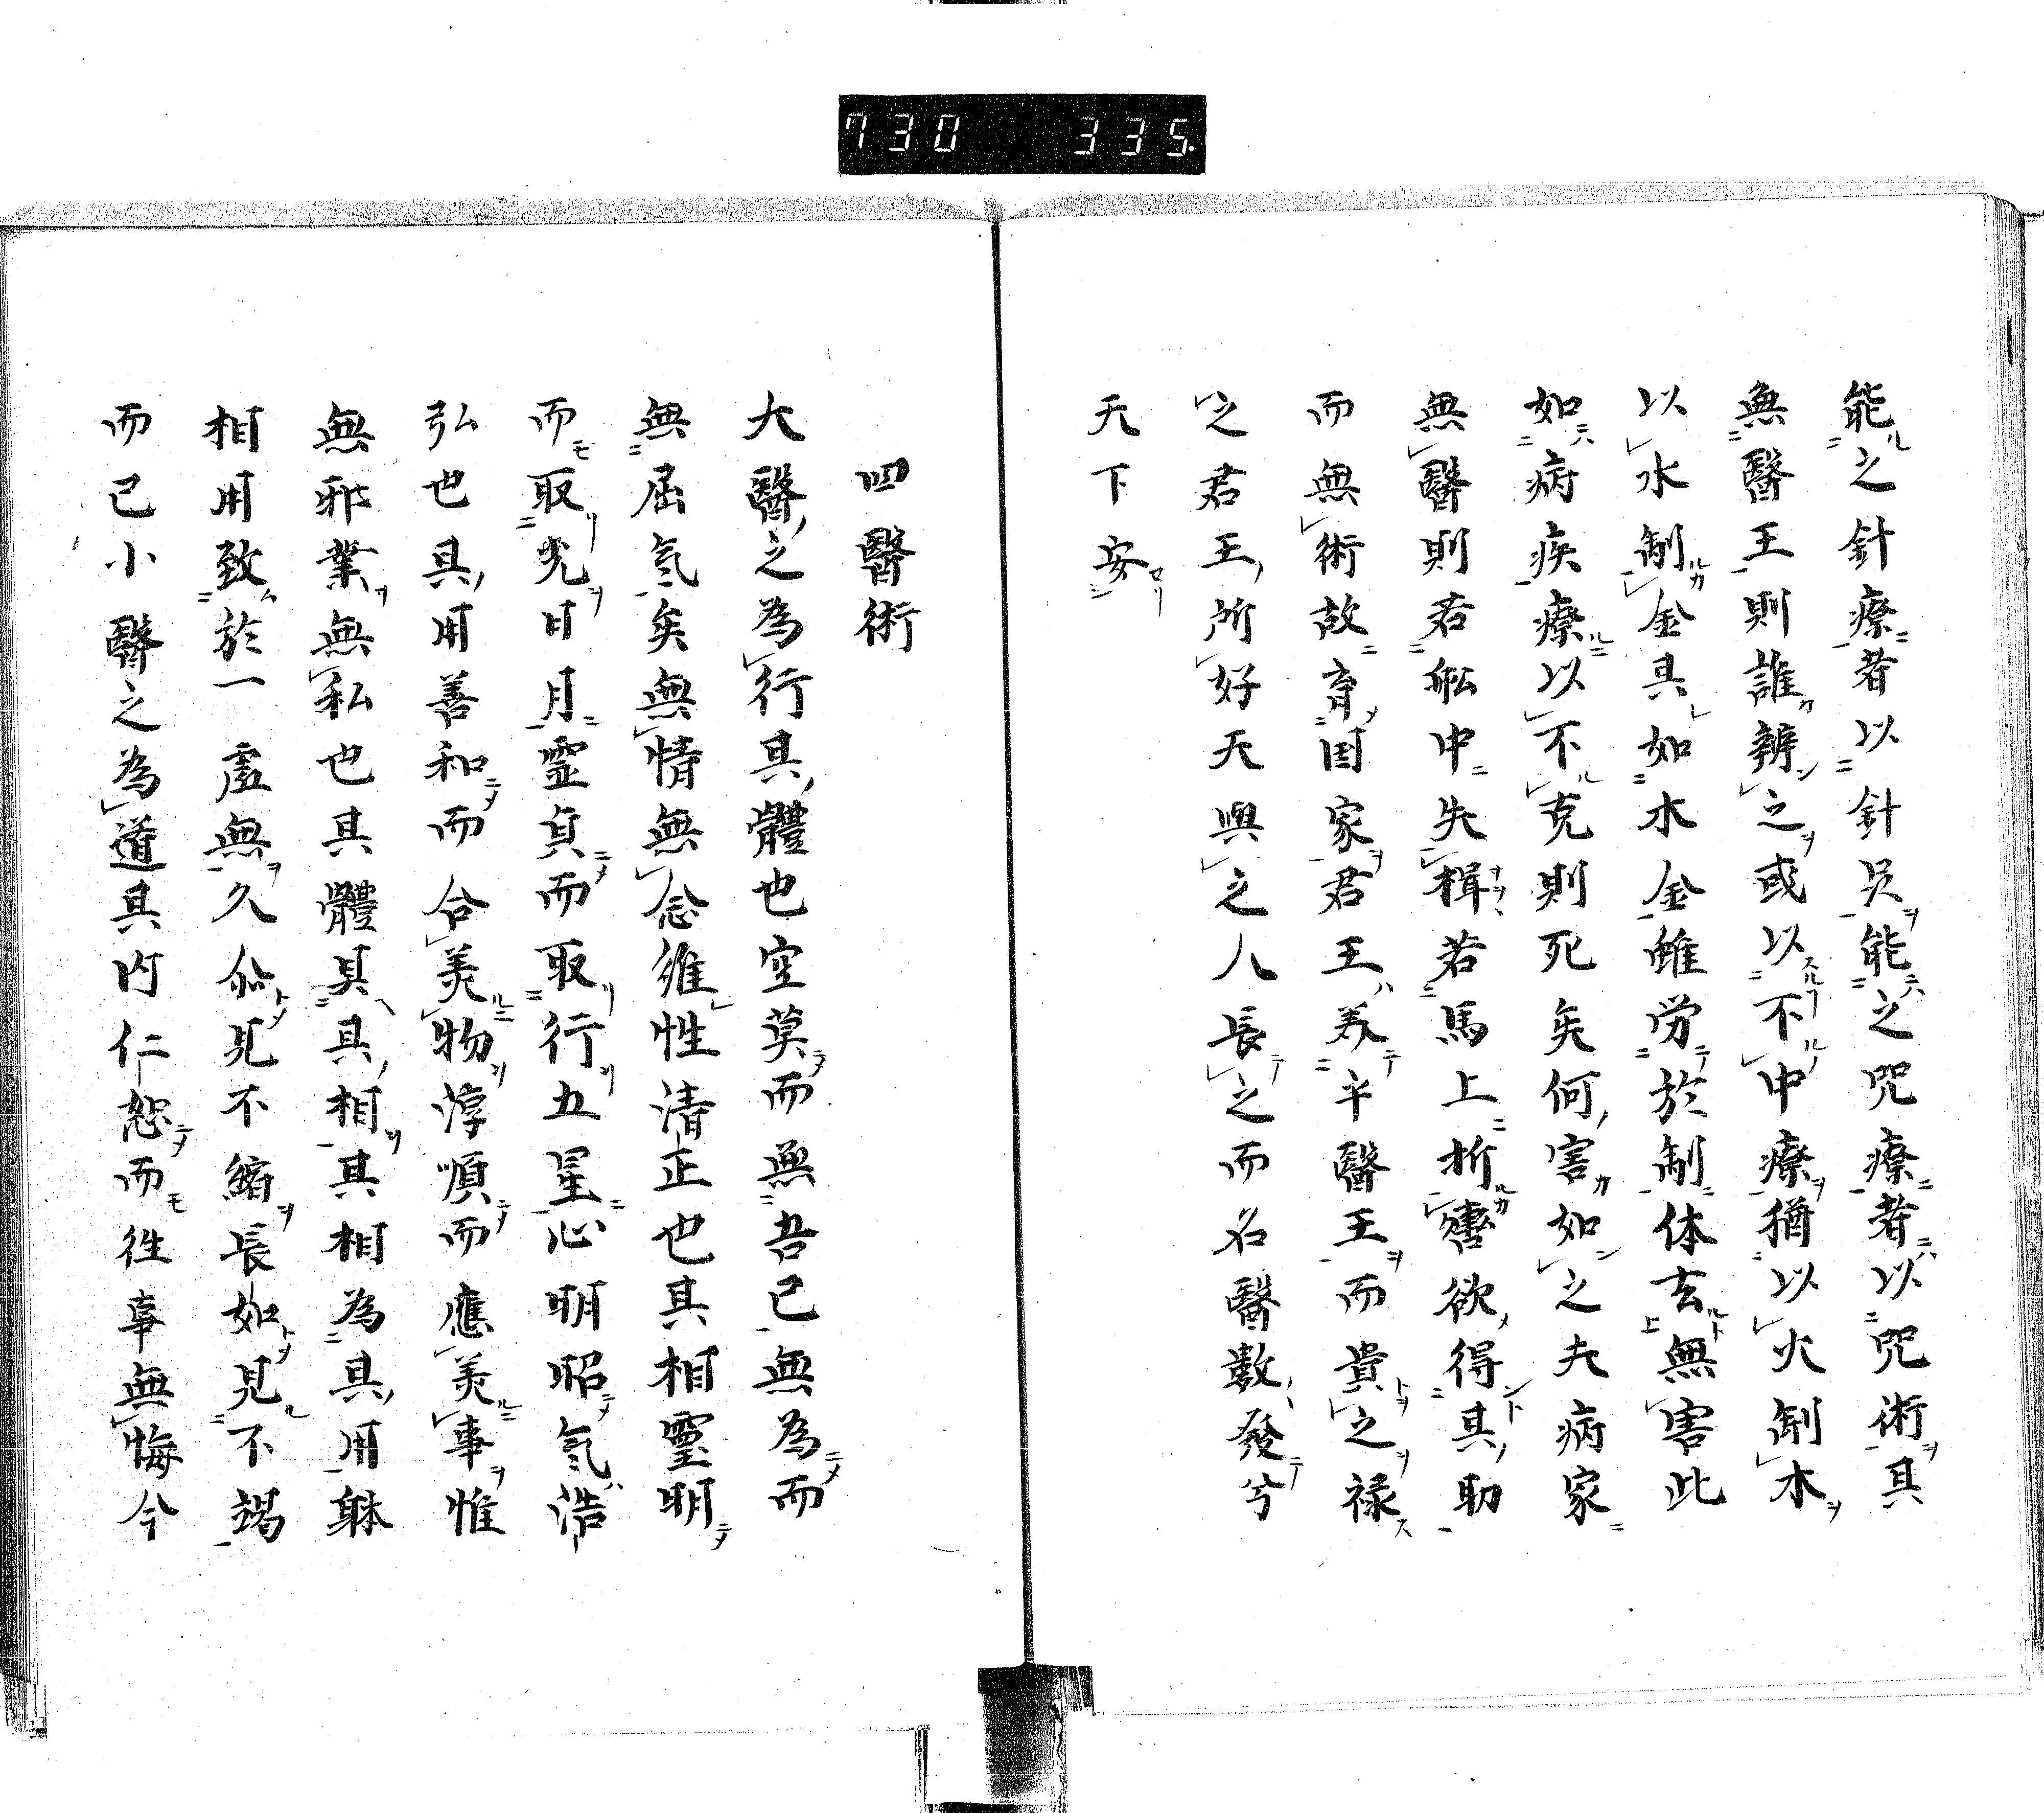 730 335.
能之針療者以針呉能之咒療者以咒術其
無醫王則誰辨之或以不中療猶以火制水
以水制金其如水金雖労於制体玄無害此
如病疾療以不克則死矣何害如之夫病家
無醫則若舩中失楫若馬上折轡欲得其助
而無術故育国家君王養平醫王而貴之禄
之君王所好天與之人長之而名醫数發兮
天下安
四醫術
大醫之為行其體也空莫而無吾已無為而
無屈氣矣無情無念維性清正也其相靈明
而取光日月靈貞而取行五星心明昭氣浩
弘也其用善和而合美物淳順而應美事惟
無邪業無私也其體具其相其相為其用躰
相用致於一虚無久尒見不縮長如見不竭
而已小醫之為道其内仁恕而徃事無悔今